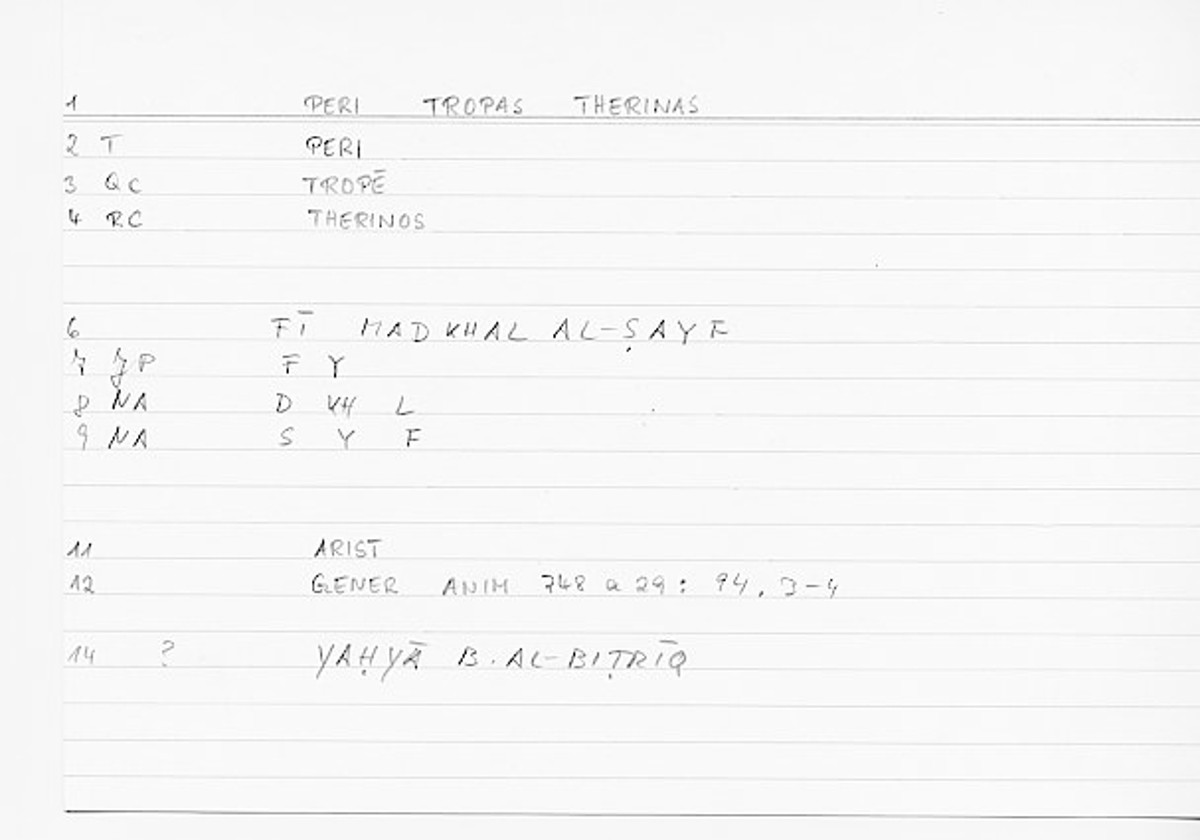 1 PERI TROPAS THERINAS
2 T PERI
3 QC TROPĒ
4 RC THERINOS
6 FĪ MADKHAL AL-ṢAYF
7 JP F Y
8 NA D KH L
9 NA S Y F
11 ARIST
12 GENER ANIM 748 a 29: 94, 3-4
14 ? YAḤYĀ B. AL-BIṬRĪQ